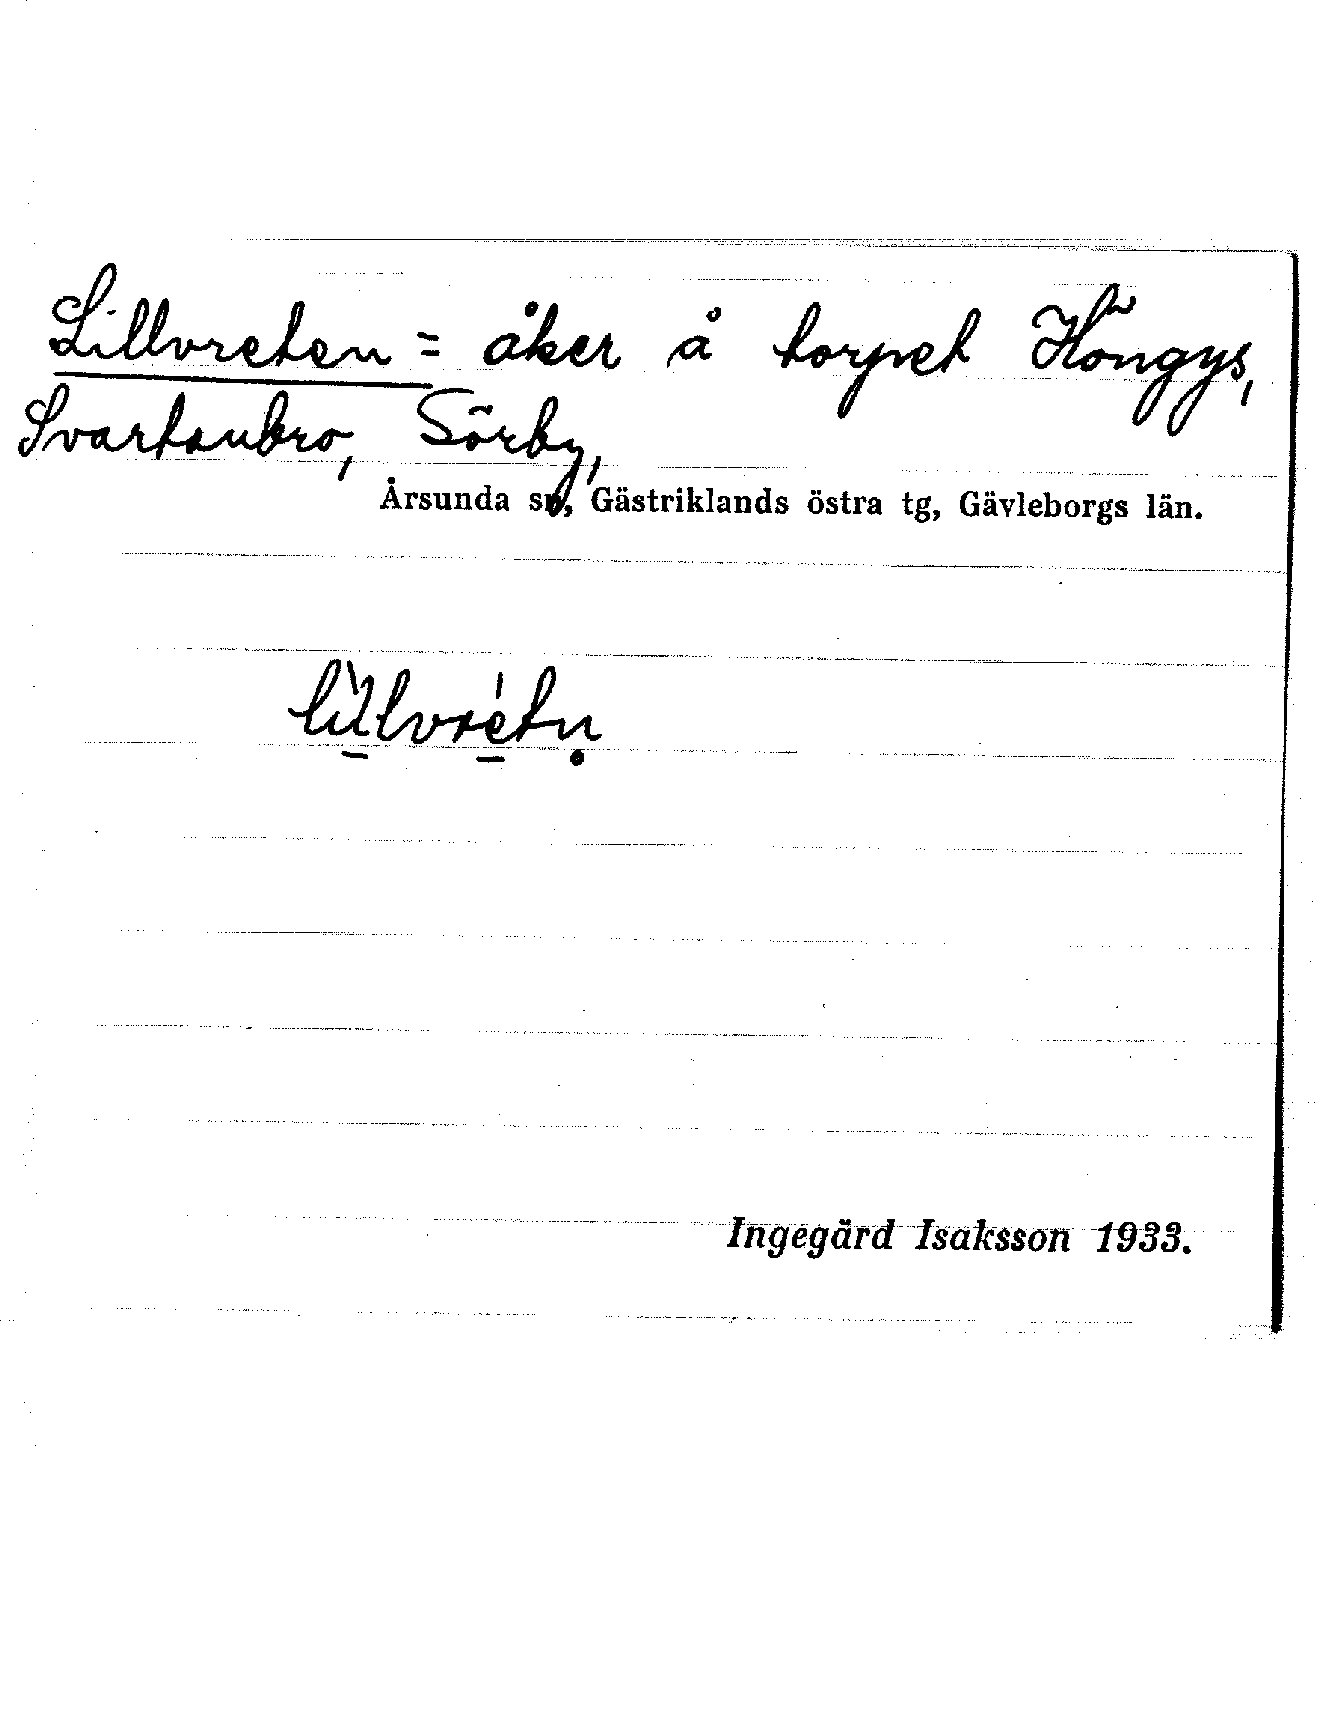 Lillvreten = åker å torpet Höngys,
Svartanbro, Sörby,
Årsunda sn, Gästriklands östra tg, Gävleborgs län.
Ingegärd Isaksson 1933.